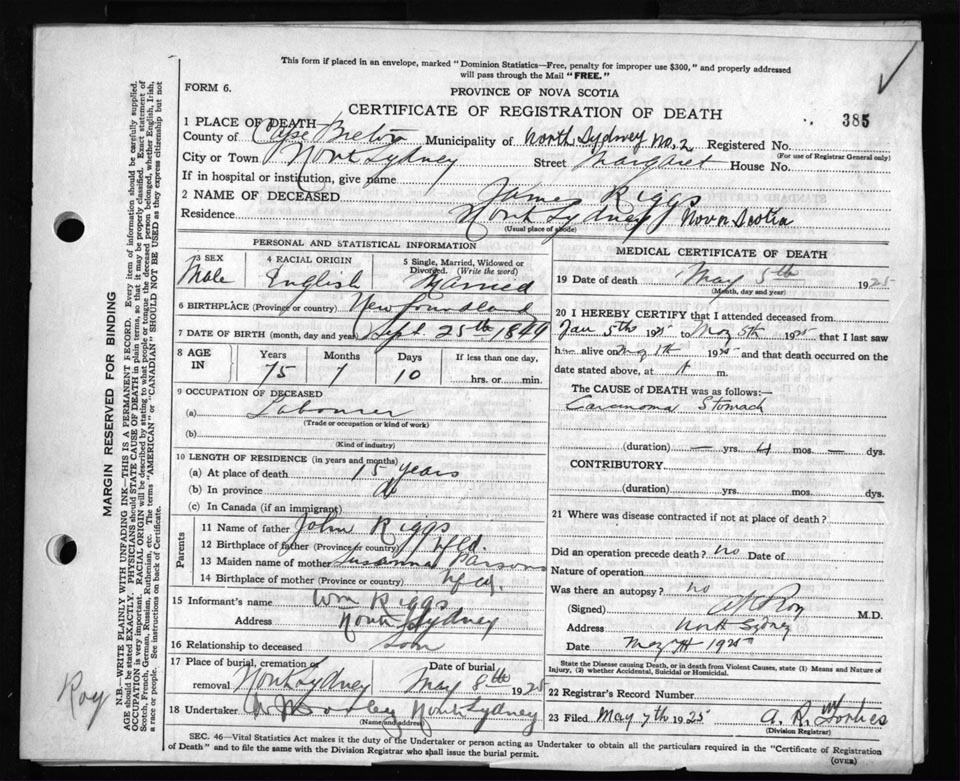 This form if placed in an envelope, marked "Dominion Statistics—Free, penalty for improper use $300," and properly addressed
will pass through the Mail "FREE."
FORM 6.
PROVINCE OF NOVA SCOTIA
CERTIFICATE OF REGISTRATION OF DEATH
385
1 PLACE OF DEATH
County of Cape Breton Municipality of North Sydney No. 2 Registered No.
(For use of Registrar General only)
City or Town North Sydney Street Margaret House No.
If in hospital or institution, give name
2 NAME OF DECEASED James Riggs
Residence North Sydney Nova Scotia
(Usual place of abode)
PERSONAL AND STATISTICAL INFORMATION
3 SEX
Male
4 RACIAL ORIGIN
English
5 Single, Married, Widowed or
Divorced. (Write the word)
Married
6 BIRTHPLACE (Province or country) Newfoundland
7 DATE OF BIRTH (month, day and year) Sept. 25th 1849
8 AGE
IN
Years Months Days If less than one day,
75 7 10 hrs. or min.
9 OCCUPATION OF DECEASED
(a) Labourer
(Trade or occupation or kind of work)
(b)
(Kind of industry)
10 LENGTH OF RESIDENCE (in years and months)
(a) At place of death 15 years
(b) In province do
(c) In Canada (if an immigrant)
Parents
11 Name of father John Riggs
12 Birthplace of father (Province or country) Nfld.
13 Maiden name of mother Susanna Parsons
14 Birthplace of mother (Province or country) Nfld.
15 Informant's name Wm Riggs
Address North Sydney
16 Relationship to deceased Son
17 Place of burial, cremation or
removal North Sydney
Date of burial
May 8th 1925
18 Undertaker North Sydney
(Name and address)
MEDICAL CERTIFICATE OF DEATH
19 Date of death May 5th 1925
(Month, day and year)
20 I HEREBY CERTIFY that I attended deceased from
Jan 5th 1925 to May 5th 1925 that I last saw
h alive on May 1925 and that death occurred on
date stated above, at m.
The CAUSE OF DEATH was as follows:—
Carcinoma Stomach
(duration) — yrs. 4 mos. — dys.
CONTRIBUTORY
(duration) yrs. mos. dys.
21 Where was disease contracted if not at place of death?
Did an operation precede death? no Date of
Nature of operation
Was there an autopsy? no
(Signed) Roy M.D.
Address North Sydney
Date May 7th 1925
State the Disease causing Death, or in death from Violent Causes, state (1) Means and Nature of
Injury, (2) whether Accidental, Suicidal or Homicidal.
22 Registrar's Record Number
23 Filed May 7th 1925 A. R. Forbes
(Division Registrar)
SEC. 46—Vital Statistics Act makes it the duty of the Undertaker or person acting as Undertaker to obtain all the particulars required in the "Certificate of Registration
of Death" and to file the same with the Division Registrar who shall issue the burial permit.
(OVER)
MARGIN RESERVED FOR BINDING
N.B.—WRITE PLAINLY WITH UNFADING INK—THIS IS A PERMANENT RECORD. Every item of information should be carefully supplied.
AGE should be stated EXACTLY. PHYSICIANS should STATE CAUSE OF DEATH in plain terms, so that it may be properly classified. Exact statement of
OCCUPATION is very important. RACIAL ORIGIN will be described by stating to what people or tongue the deceased person belonged, whether English, Irish,
Scotch, French, German, Russian, Ruthenian, etc. The terms "AMERICAN" or "CANADIAN" SHOULD NOT BE USED as they express citizenship but not
a race or people. See instructions on back of Certificate.
Roy